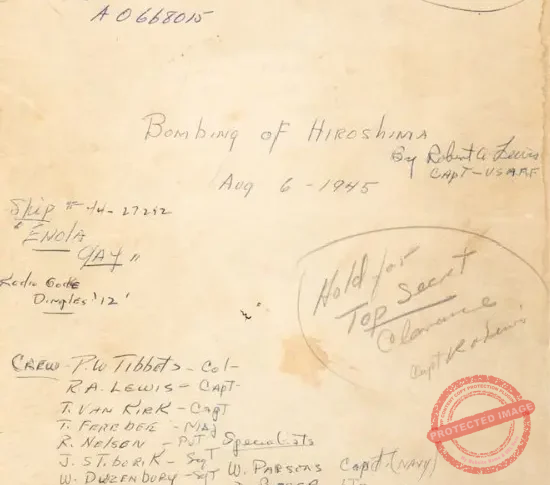 AO668015
Bombing of Hiroshima
By Robert A. Lewis
Capt-USAAF
Aug 6 - 1945
Ship # 44-27292
"Enola
Gay"
Radio Code
Dimples '12'
Hold for
Top Secret
Clearance
Capt R A Lewis
Crew - P.W. Tibbets - Col-
R.A. Lewis - Capt-
T. Van Kirk - Capt
T. Ferebee - Maj
R. Nelson - Pvt Specialists
J. Stiborik - Sgt W. Parsons Capt. (Navy)
W. Duzenbury - Sgt
COPY CONTENT PROTECTION
PROTECTED IMAGE